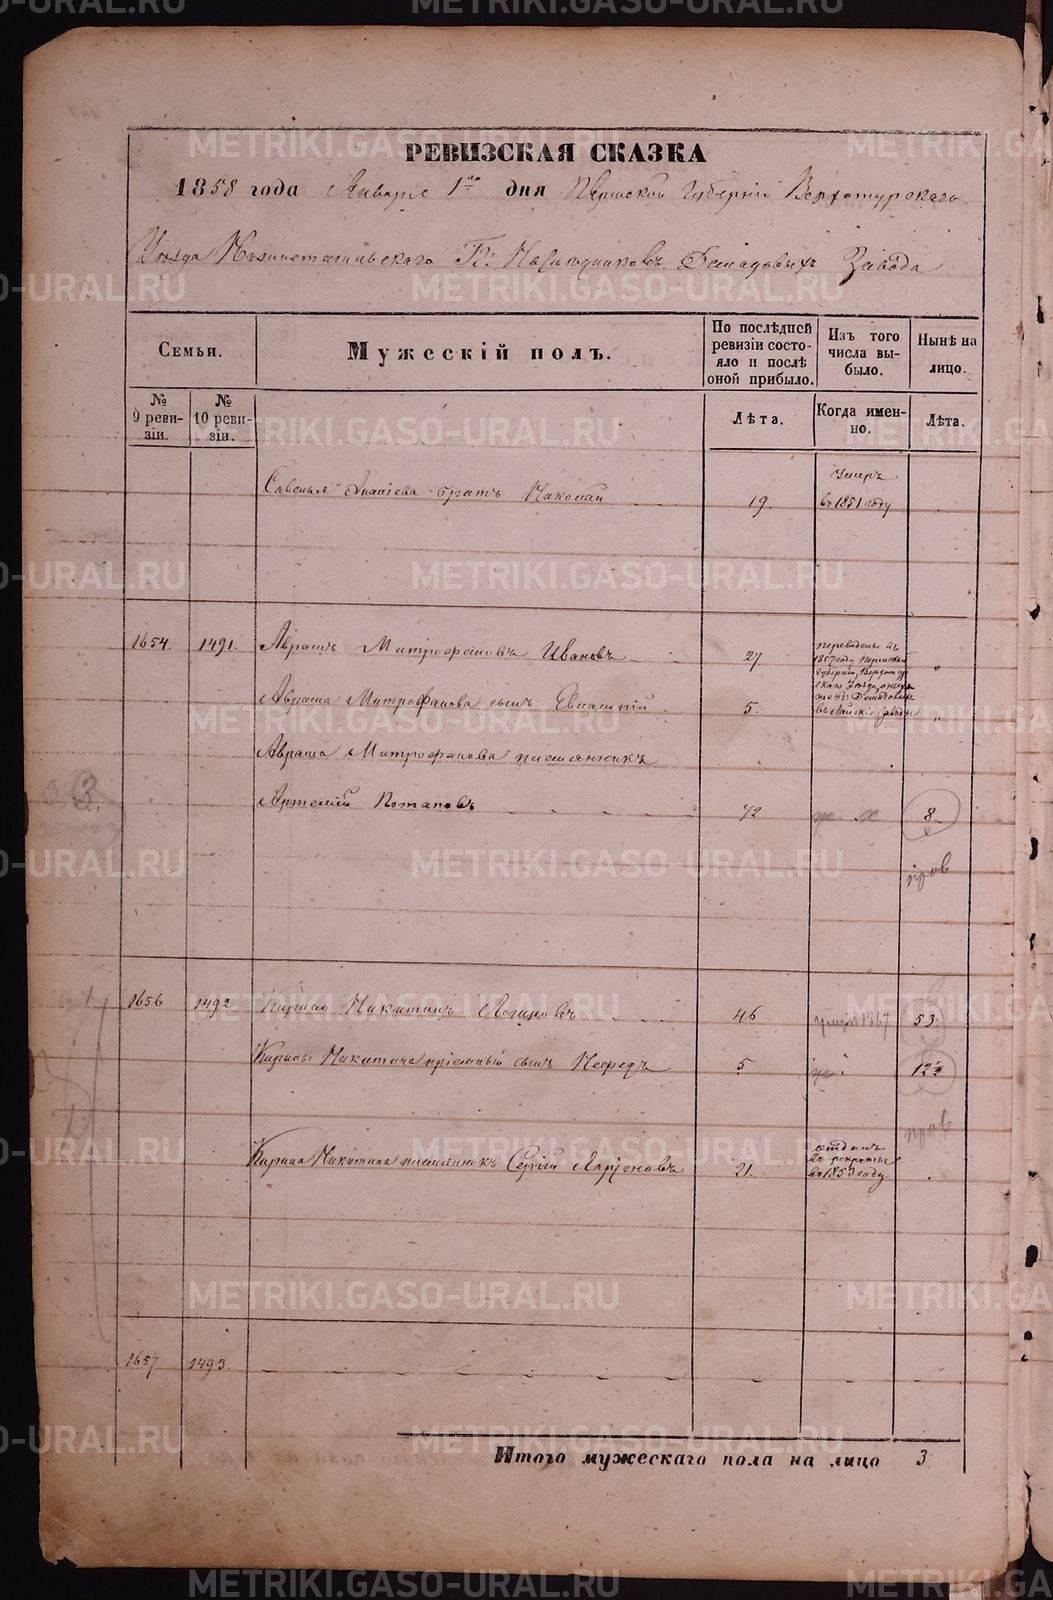 РЕВИЗСКАЯ СКАЗКА
1858 года Января 1го дня Пермской Губернiи Верхотурскаго
Уѣзда Нижнетагильскаго Гг: Наслѣдниковъ Демидовыхъ Завода
Семьи.
Мужескiй полъ.
По послѣдней ревизiи состояло и послѣ оной прибыло.
Изъ того числа выбыло.
Нынѣ на лицо.
№ 9 ревизiи.
№ 10 ревизiи.
Лѣта.
Когда именно.
Лѣта.
Савелья Ананiева братъ Николай 19. Умеръ въ 1851 году
1654. 1491. Аврамъ Митрофановъ Ивановъ 27 переведены въ 1857 году Пермской Губернiи, Верхотурскаго Уѣзда, Демидовыхъ въ Лайскiе Заводы "
Аврама Митрофанова сынъ 5. "
Аврама Митрофанова племянникъ
Артемiй Потаповъ 1/2 8
пров
1656 1492 Кирило Никитинъ Логиновъ 46 умеръ 1867 53.
Кирилы Никитина прiемный сынъ 5 12½
пров
Кирила Никитина племянникъ Сергiй Ларiоновъ 21. отданъ въ рекруты въ 1853 году
1657 1493.
Итого мужескаго пола на лицо 3
3
METRIKI.GASO-URAL.RU